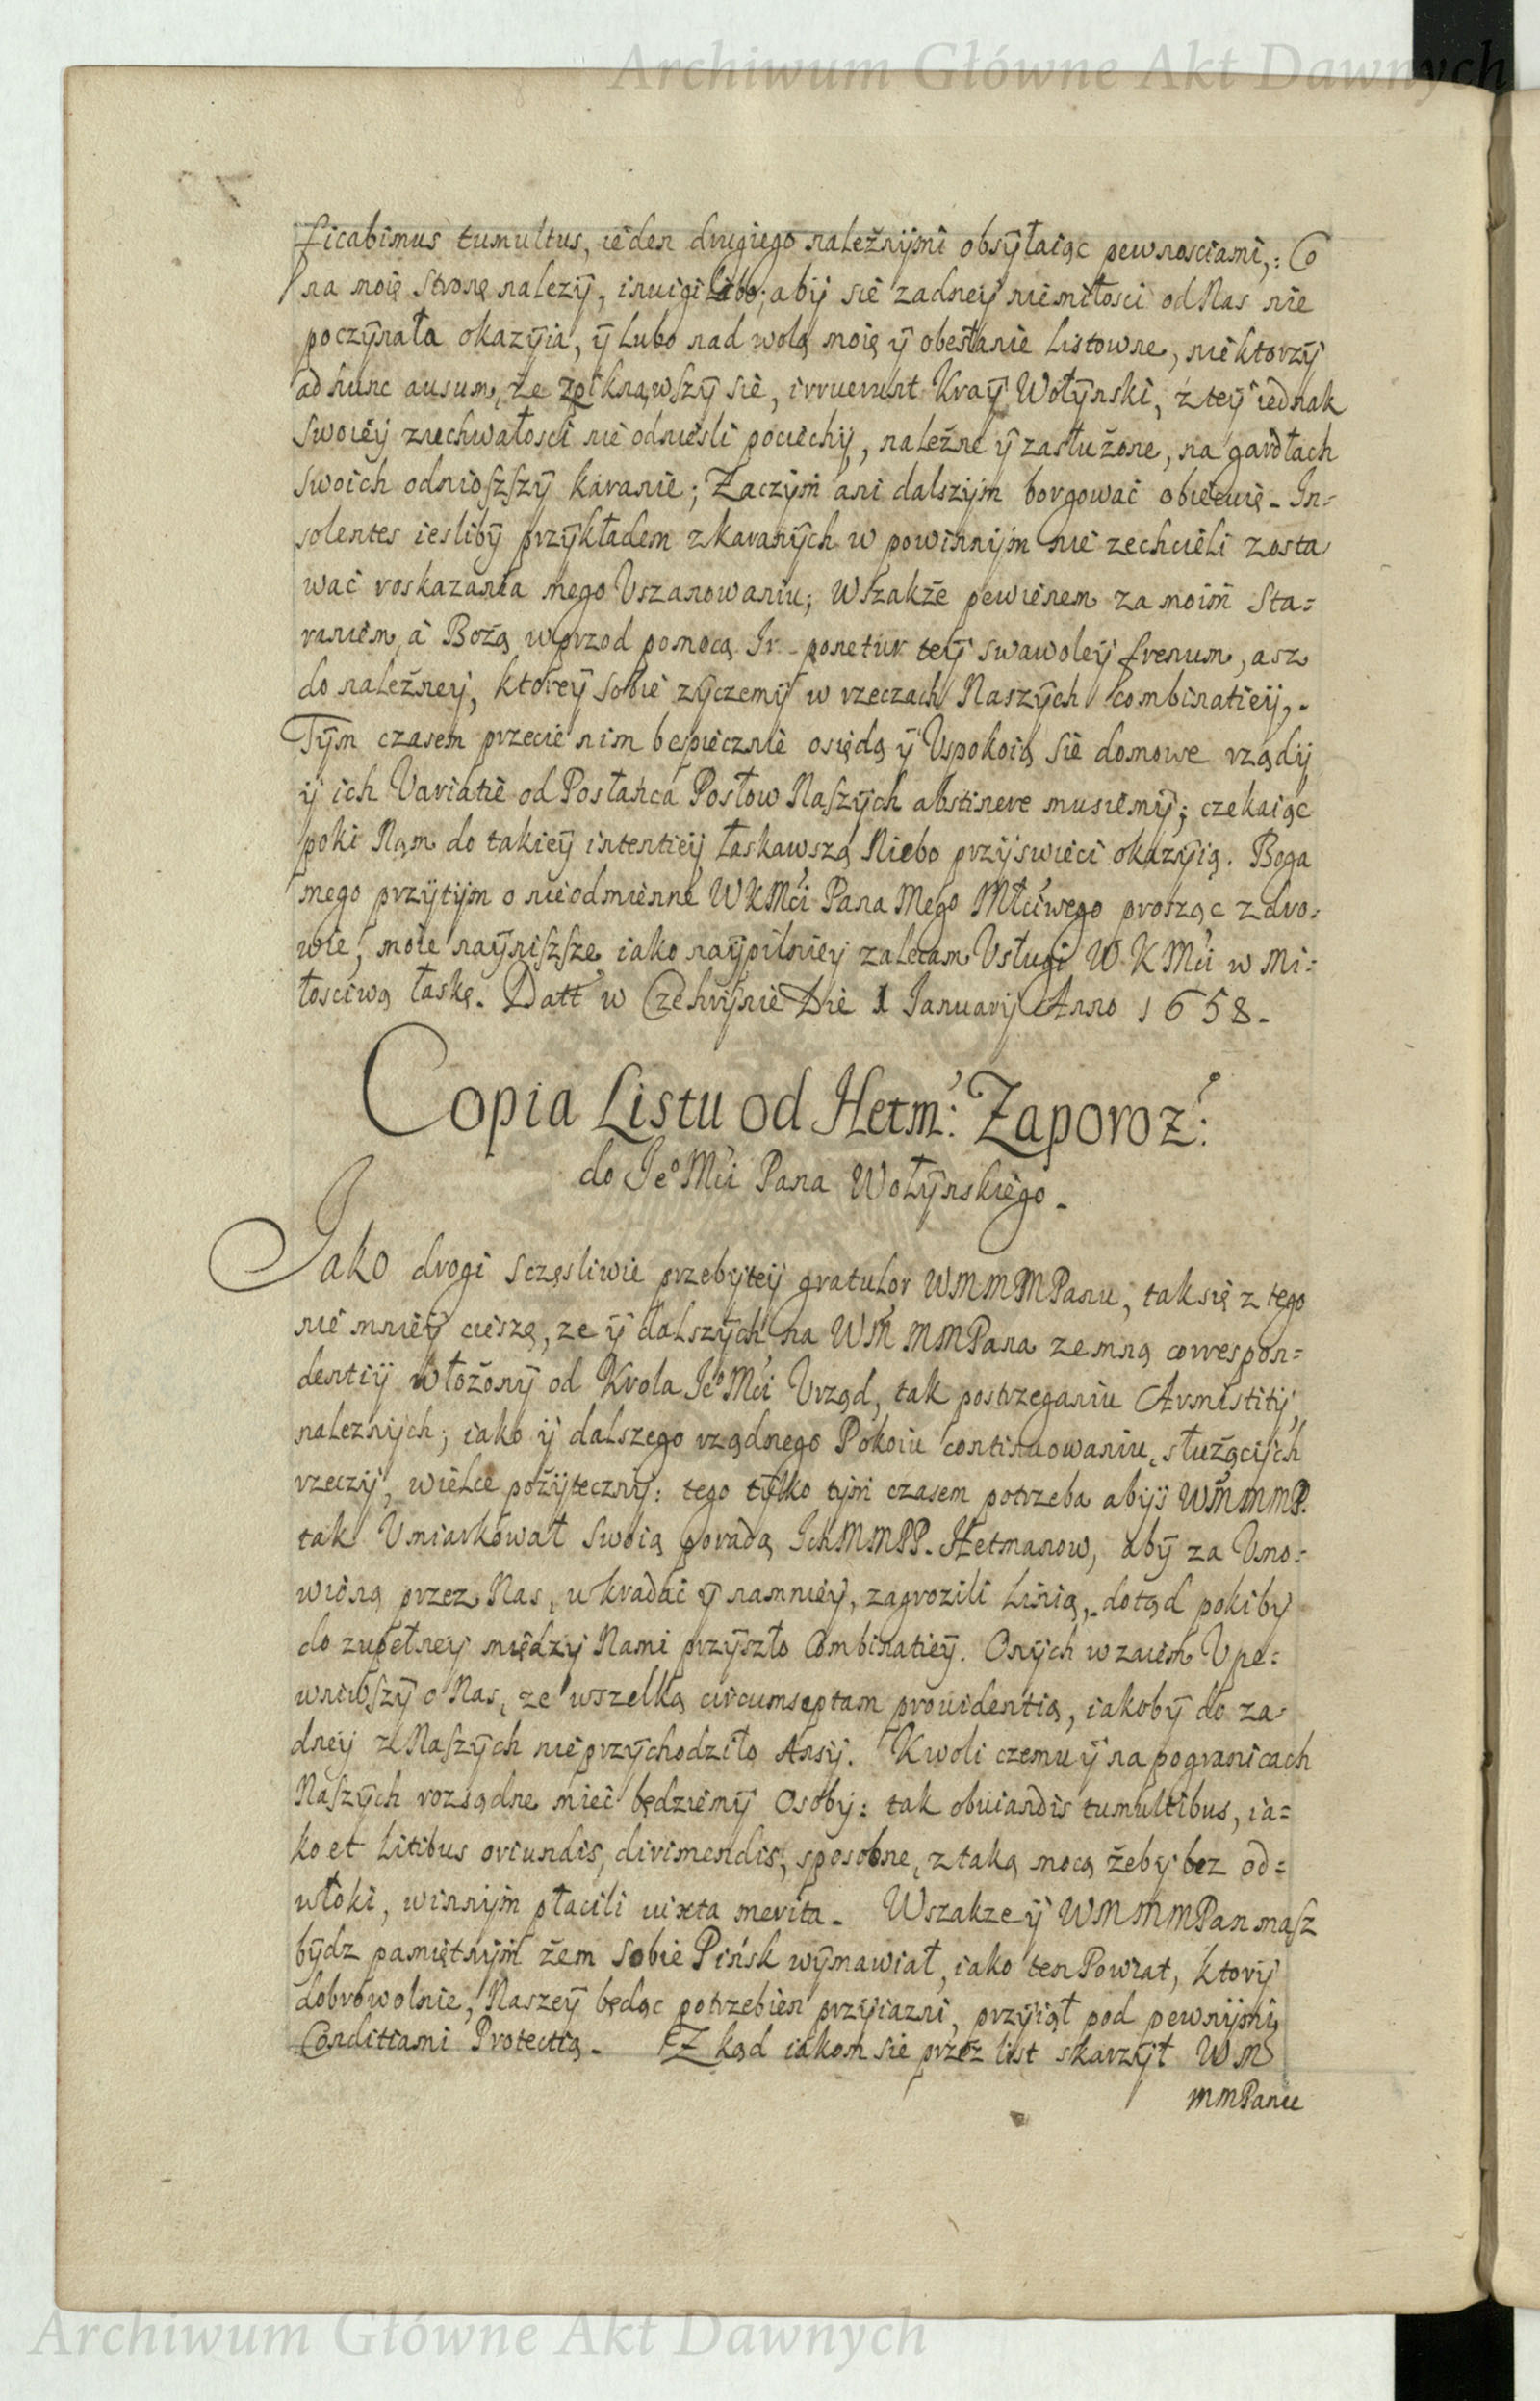 Archiwum Główne Akt Dawnych
ficabimus tumultus, ieden drugiego należnÿmi obsÿłaiąc pewnosciami,: Co
na moię stronę nalezÿ, inuigilabo; abÿ sie zadneÿ niemiłosci od Nas nie
poczÿnała okazÿia, ÿ lubo nad wolą moią ÿ obesłanie Listowne, niektorzÿ
ad hunc ausum, że zpiknąwszÿ sie, irruerunt Kraÿ Wołÿnski, z teÿ iednak
swoieÿ zuchwałosci nie odniesli pociechÿ, należne ÿ zasłużone, na gardłach
swoich odnioszszÿ karanie; Zaczÿm ani dalszÿm borgować obiecuię - In=
solentes iesliby przÿkładem zkaranÿch w powinnÿm nie zechcieli zosta
wać roskazania mego Uszanowaniu; Wszakże pewienem za moim sta=
raniem, á Bożą wprzod pomocą Ir-ponetur teÿ swawoleÿ frenum, asz
do należneÿ, ktoreÿ sobie zÿczemÿ w rzeczach Naszÿch combinatieÿ,.
Tÿm czasem przecie nim bespiecznie osiędą ÿ Uspokoią sie domowe rządÿ
ÿ ich Variatie od Posłańca Posłow Naszÿch abstinere musiemÿ; czekaiąc
poki Nam do takieÿ intentieÿ łaskawszą Niebo przÿswieci okazÿią. Boga
mego przÿtÿm o nieodmienne WKMći Pana Mego Młćiwego prosząc zdro:
wie, moie naÿniszsze, iako naÿpilnieÿ zalecam Usługi W K Mći w mi:
łosciwą łaskę. Datt w Czehrÿnie Die 1 Januarÿ Anno 1658.
Copia Listu od Hetm: Zaporoz:
do Jeº Mći Pana Wołÿnskiego.
Jako drogi sczęsliwie przebÿteÿ gratulor WMMMPanu, tak się z tego
nie mnieÿ cieszę, ze ÿ dalszÿch na WM MMPana zemną correspon=
dentiÿ włożonÿ od Krola Jeº Mći Urząd, tak postrzeganiu Armistitÿ,
nalezńÿch; iako ÿ dalszego rządnego Pokoiu continuowaniu, służącÿch
rzeczÿ, wielce pożÿtecznÿ: tego tÿlko tÿm czasem potrzeba abÿś WMMMP.
tak Umiarkował swoią poradą IchMMPP. Hetmanow, abÿ za Umo:
wioną przez Nas, wkradać ÿ namnieÿ, zagrozili Linią, dotąd pokiby
do zupełneÿ międzÿ Nami przÿszło Combinatieÿ. Onÿch wzaiem Upe=
wniwszÿ o Nas, ze wszelką circumseptam prouidentią, iakobÿ do za-
dneÿ z Naszÿch nieprzÿchodziło Ansÿ. Kwoli czemu ÿ na pogranicach
Naszÿch rozsądne mieć będziemÿ Osobÿ: tak obuiandis tumultibus, ia=
ko et Litibus oriundis, dirimendis, sposobne, z taką mocą żebÿ bez od=
włoki, winnÿm płacili iuxta merita. Wszakze ÿ WMMMPan masz
bÿdz pamiętnÿm żem sobie Pińsk wÿmawiał, iako ten Powiat, ktorÿ
dobrowolnie, Naszeÿ będąc potrzebien przÿiazni, przÿiął pod pewnÿmi
Conditiami Protectią. Z kąd iakom sie przez list skarzÿł WM
MMPanu
Archiwum Główne Akt Dawnych